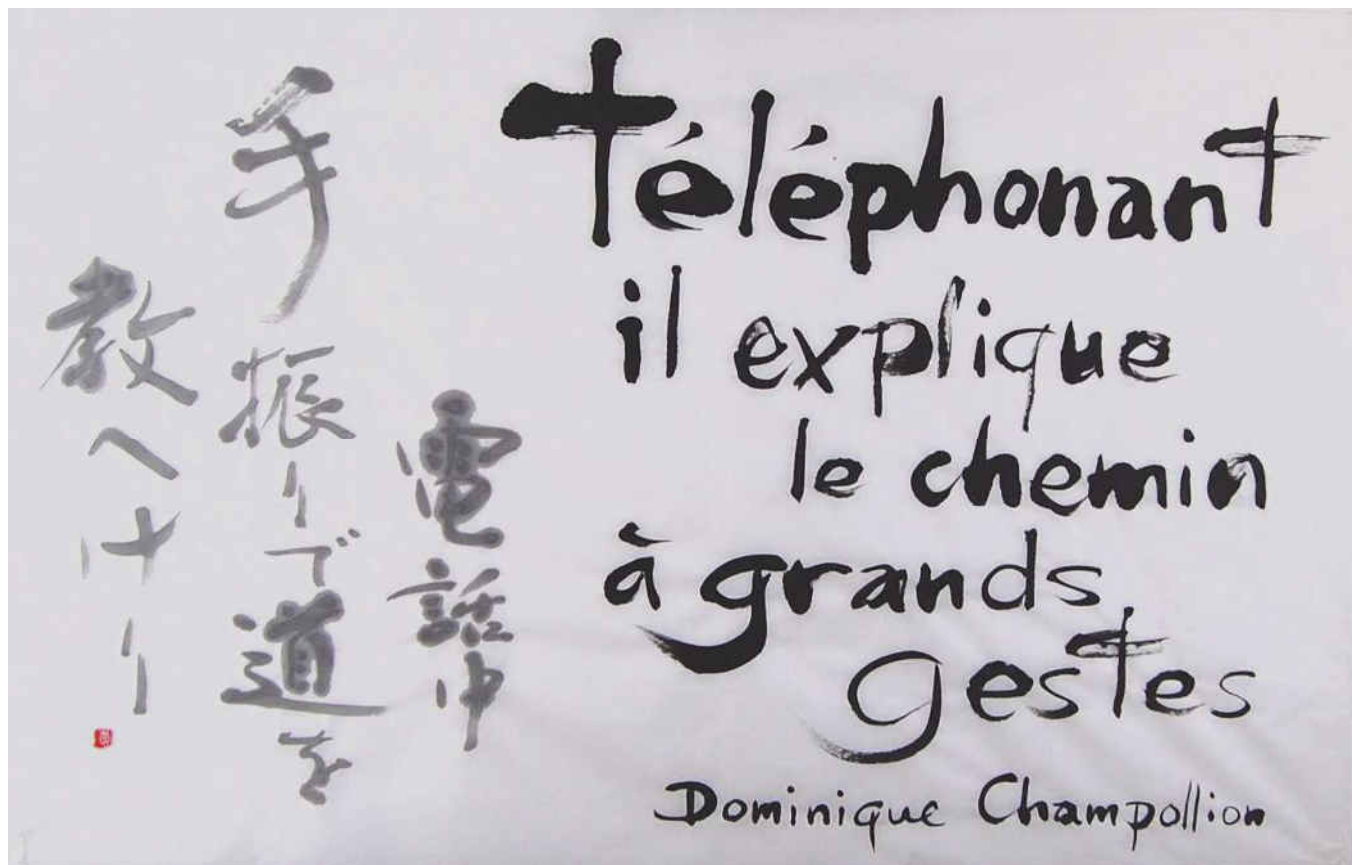 Téléphonant
il explique
le chemin
à grands
gestes
Dominique Champollion
電話中
手振りで道を
教へけり